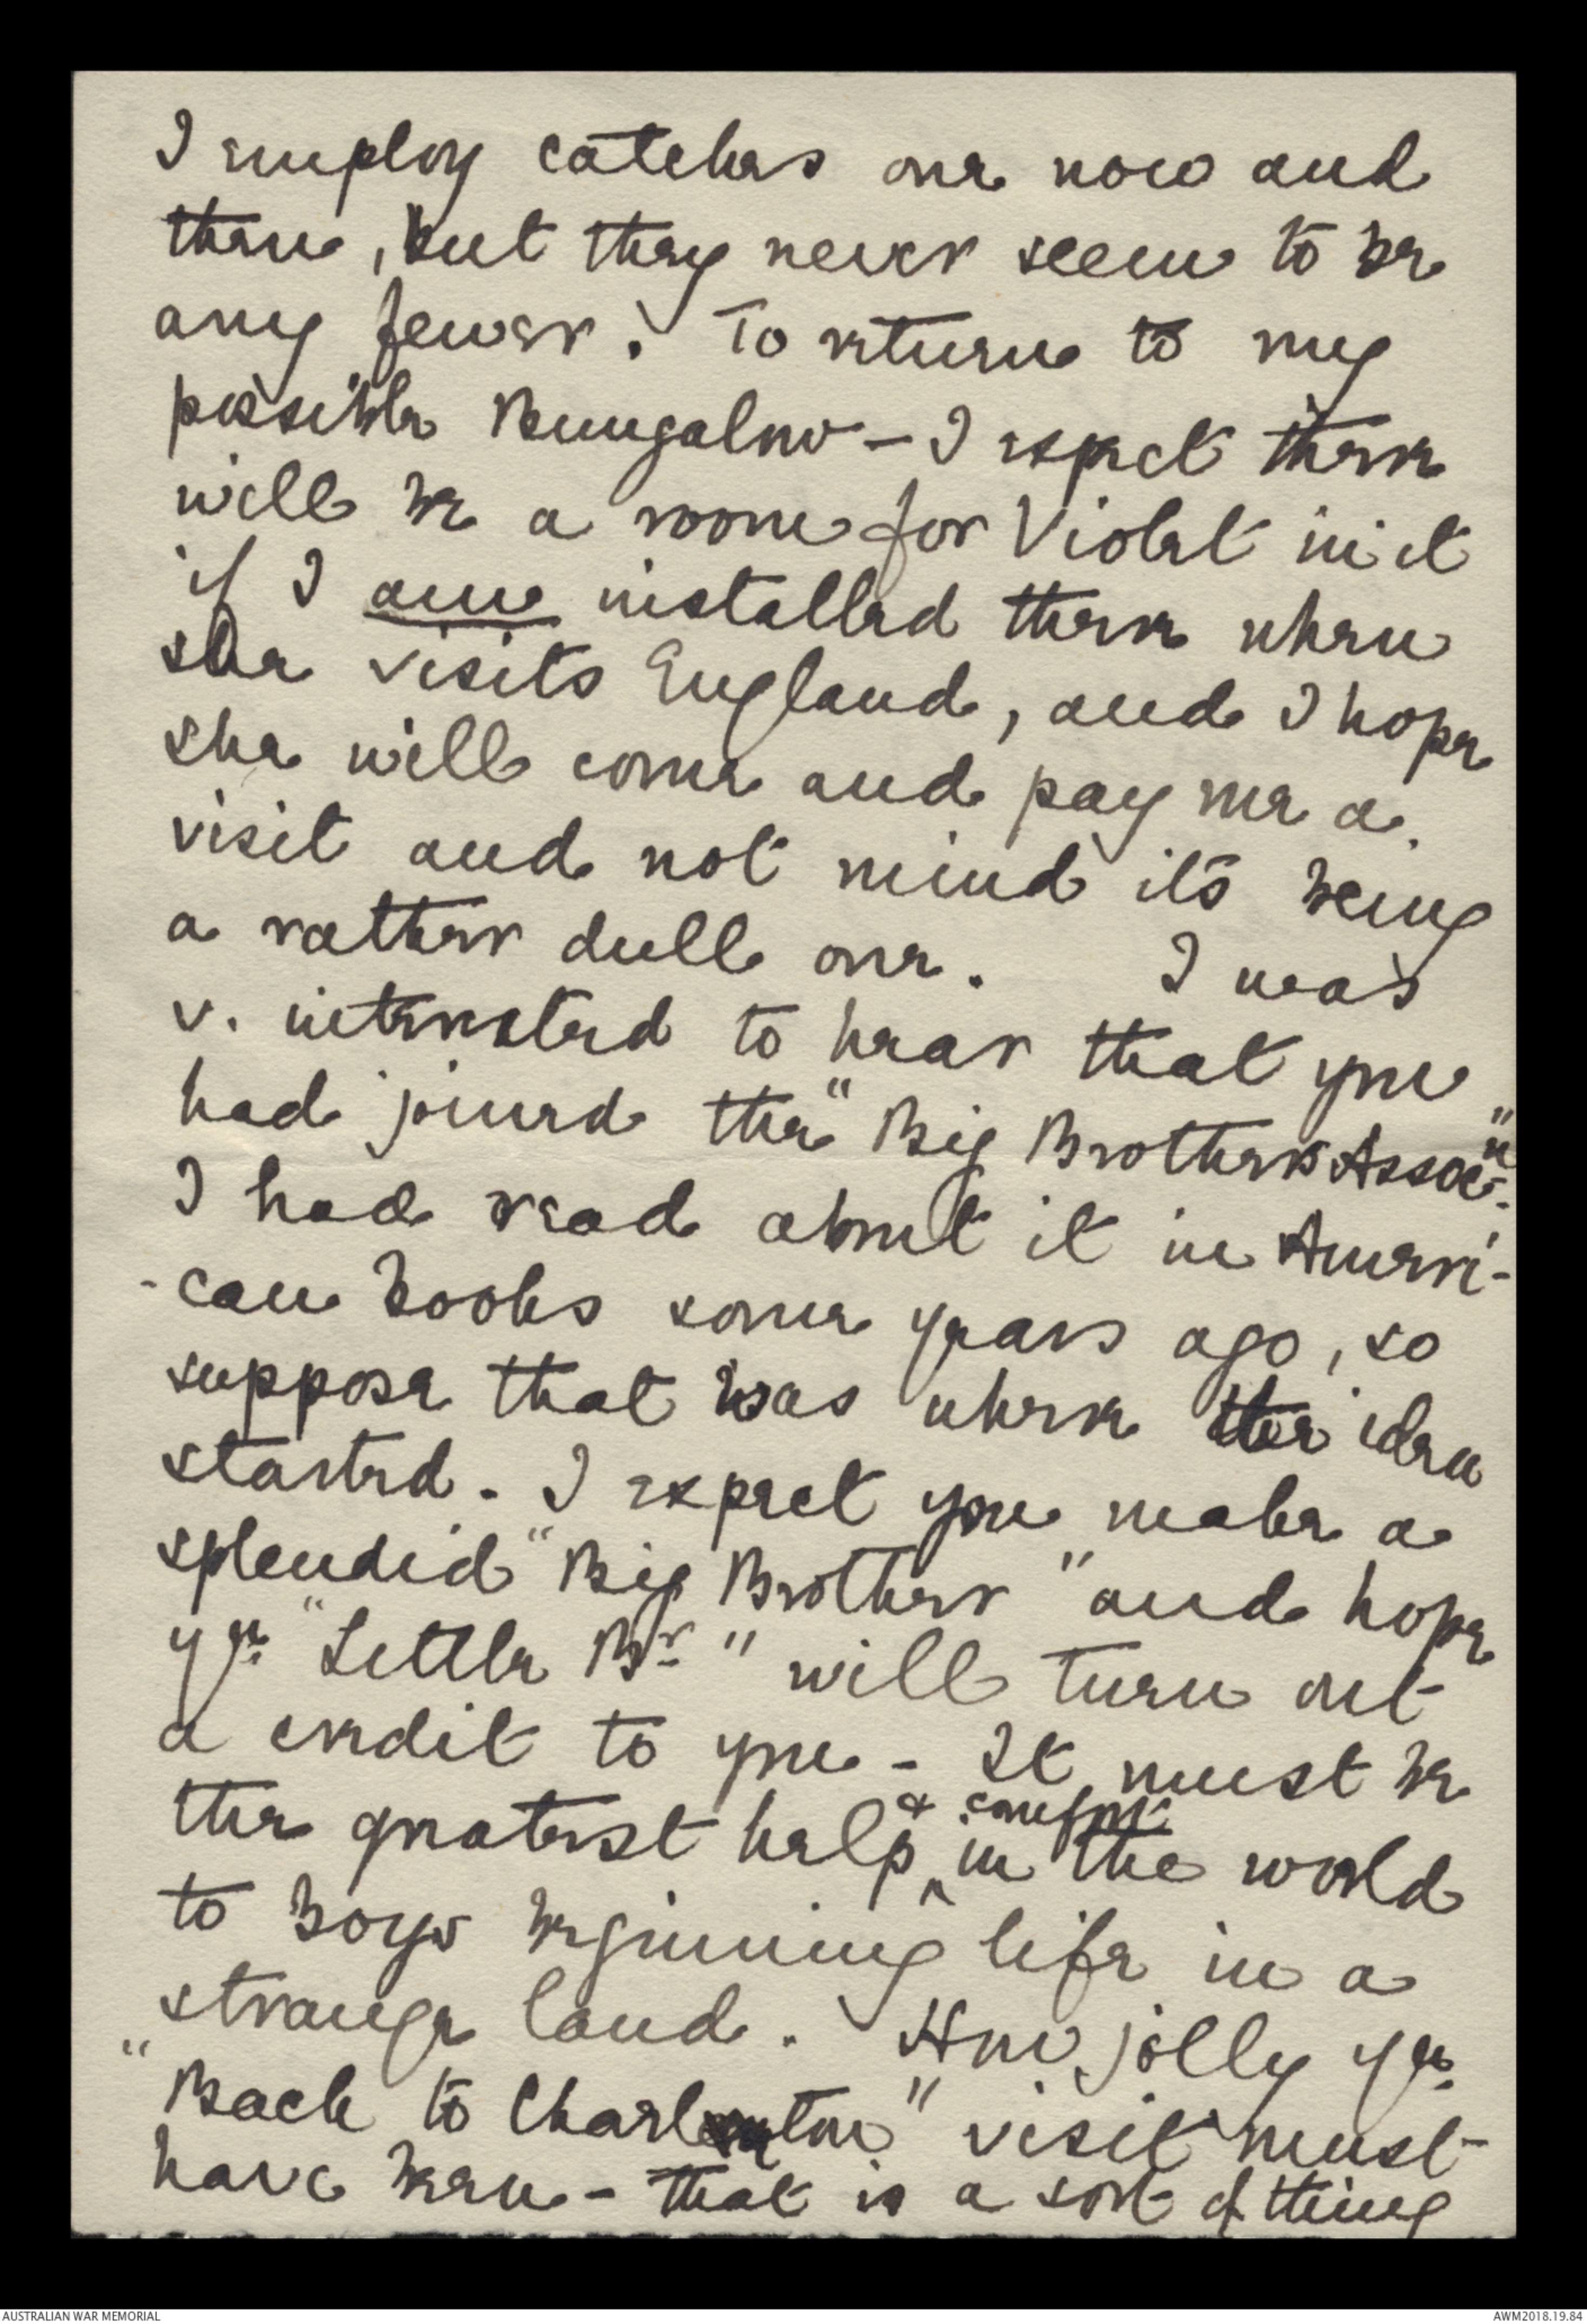 I employ catches one now and
then, but they never seem to be
any fewer. To return to my
possible Bungalow - I expect there
will be a room for Violet in it
if I am installed there when
she visits England, and I hope
she will come and pay me a
visit and not mind its being
a rather dull one. I was
v. interested to hear that you
had joined the "Big Brothers Assocn"
I had read about it in Ameri-
-can books some years ago, so
suppose that was where the idea
started. I expect you make a
splendid "Big Brother" and hope
yr. "Little Br" will turn out
a credit to you - It must be
& comfort
the greatest help ^ in the world
to boys beginning life in a
strange land. How jolly yr.
"Back to Charlton" visit must
have been - that is a sort of thing
AUSTRALIAN WAR MEMORIAL
AWM2018.19.84